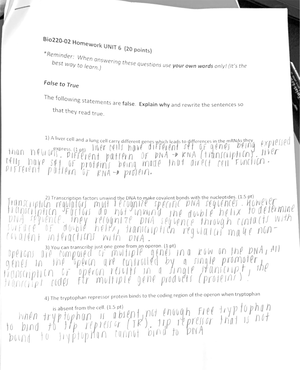 Bio220-02 Homework UNIT 6 (20 points)
*Reminder: When answering these questions use your own words only! (It's the
best way to learn.)
False to True
The following statements are false. Explain why and rewrite the sentences so
that they read true.
1) A liver cell and a lung cell carry different genes which leads to differences in the mRNAs they
express. (1 pt) liver cells have different set of genes being expressed
than neurons. Different pattern of DNA → RNA (transcription). liver
cells have set of proteins being made that direct cell function.
Different pattern of RNA → protein.
2) Transcription factors unwind the DNA to make covalent bonds with the nucleotides. (1.5 pt)
Transcription regulators must recognize specific DNA sequences. However
transcription factors do not unwind the double helix to determine
DNA sequence. They recognize DNA sequence through contact with
surface of double helix, transcription regulators make non-
covalent interactions with DNA.
3) You can transcribe just one gene from an operon. (1 pt)
operon are composed of multiple genes in a row on the DNA, All
genes in the operon are controlled by a single promoter,
transcription of operon results in a single transcript, the
transcript codes for multiple gene products (proteins).
4) The tryptophan repressor protein binds to the coding region of the operon when tryptophan
is absent from the cell. (1.5 pt)
when tryptophan is absent, not enough free tryptophan
to bind to trp repressor trp repressor that is not
bound to tryptophan cannot bind to DNA